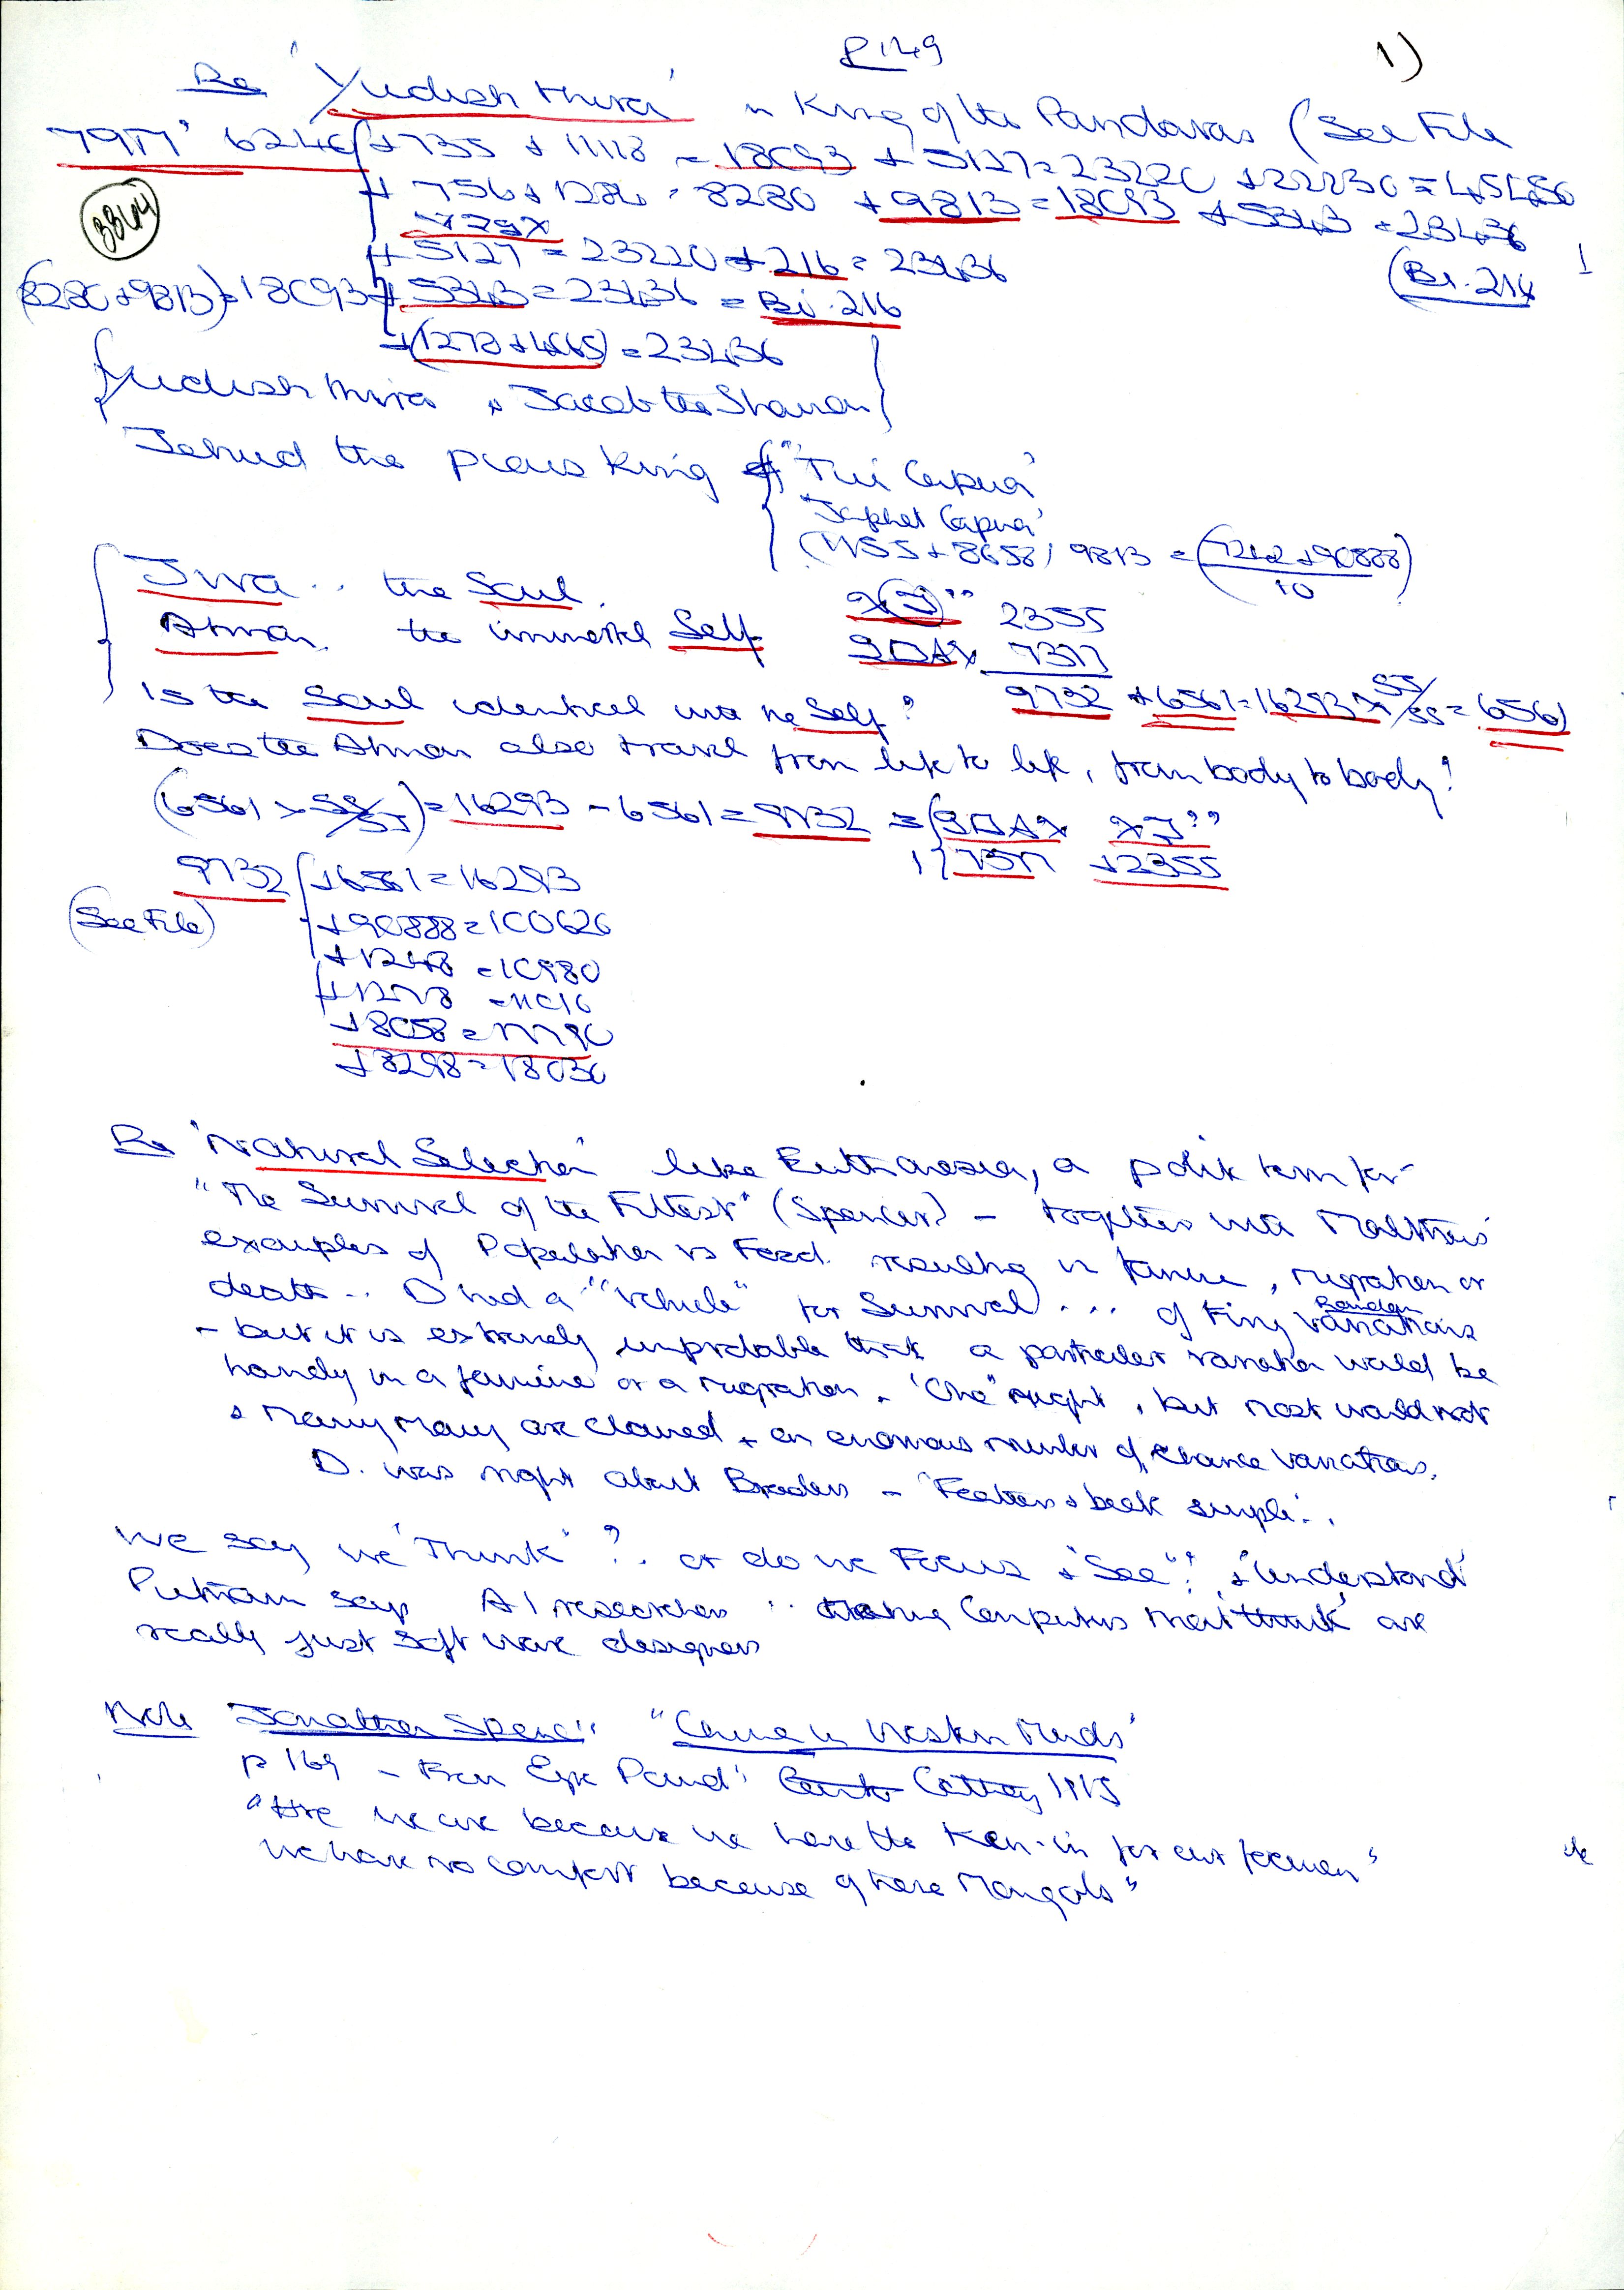 P 149
1)
Re 'Yudishthira' King of the Pandavas (See File
6240 + 735 + 11118 = 18093 + 5127 = 23220 + 22230 = 45450
+ 756 + 1284 = 8280 + 9813 = 18093 + 5343 = 23436
+ 5127 = 23220 + 216 = 23436
(Bi. 216
(8280 + 9813) = 18093 + 5343 = 23436 = Bi. 216
+ (1278 + 4065) = 23436
Yudishthira Jacob the Shaman
Jehud the pious King of "Tui Capua'
Japhet Capua'
(1155 + 8658) 9813 = (7242 + 90888)
10
Jiva .. the Soul.
2355
Atman, the immortal Self
7377
Is the Soul identical with the Self? 9732 + 6561 = 16293 = 6561
Does the Atman also travel from life to life, from body to body?
= 16293 - 6561 = 9732 =
7377 + 2355
9732 + 6561 = 16293
(See File) + 90888 = 100620
+ 1248 = 10980
+ 1278 = 11010
+ 8058 = 17790
+ 8298 = 18030
Re 'Natural Selection' like Euthanasia, a polite term for
"The Survival of the Fittest" (Spencer) - together with Malthus'
examples of Population vs Food resulting in famine, migration or
death .. D had a "Vehicle" for Survival ... of tiny Random variations
- but it is extremely improbable that a particular variation would be
handy in a famine or a migration. 'One' might, but most would not
& Many Many are claimed + an enormous number of chance variations.
D. was right about Breeders - 'Feathers & beak simple'..
We say we 'Think' ? . or do we Focus & 'See' ? & 'Understand'
Putnam says AI researchers .. making Computers that 'think' are
really just soft ware designers
Note Jonathan Spence "China in Western Minds'
p 169 - From Ezra Pound's Cathay 1915
"Here we are because we have the Ken-in for our foemen"
We have no comfort because of these Mongols"